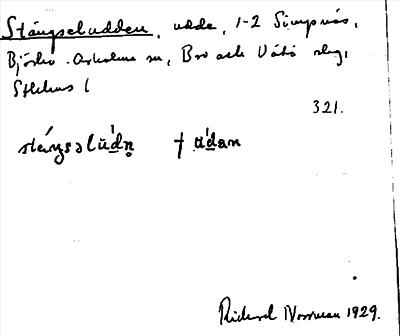 Stängseludden, udde, 1-2 Simpnäs,
Björkö-Arholma sn, Bro och Vätö skg,
Sthlms l
321.
stáŋsəlùdn̥ † ùdan
Rickard Norrman 1929.